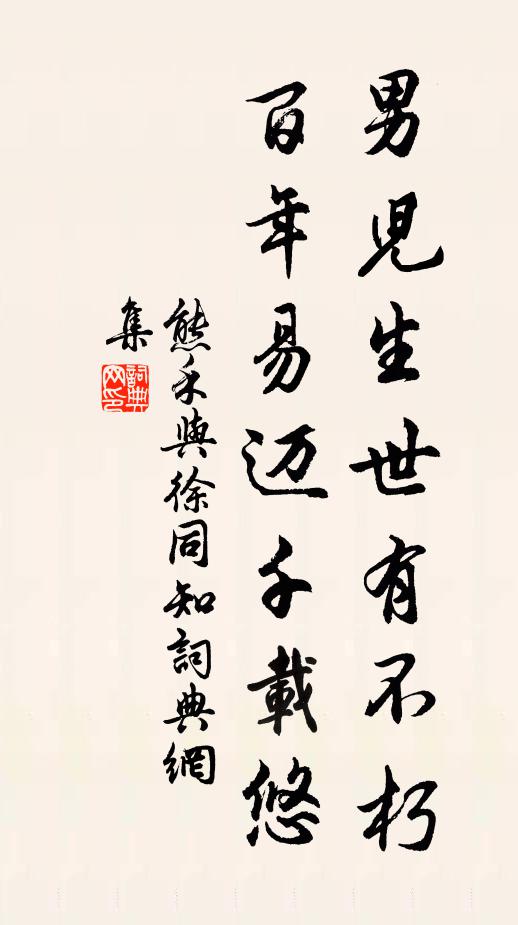 男兒生世有不朽
百年易迈千載悠
熊禾與徐同知詞典網
集
詞典
网印